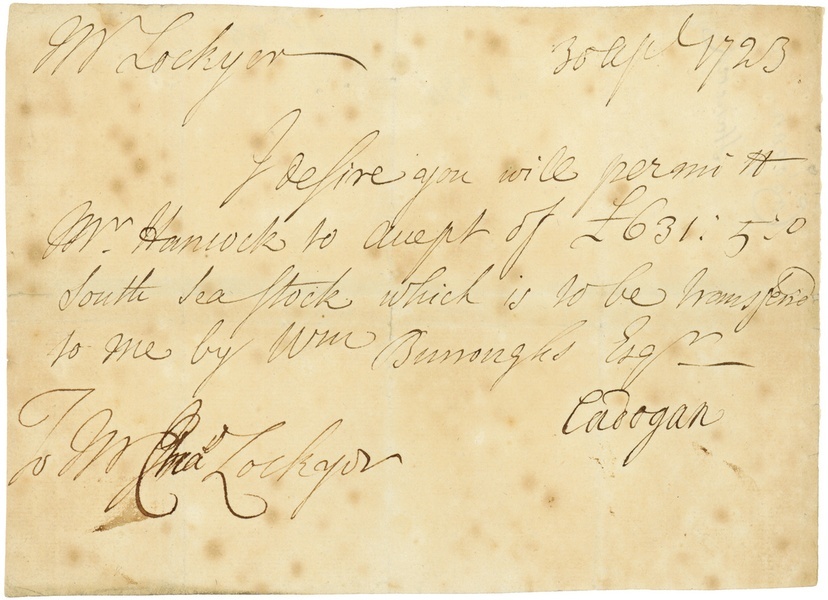 Mr Lockyer 30 apl 1723
I desire you will permitt
Mr. Hancock to accept of £631: 5: 0
South Sea Stock which is to be transferd
to me by Wm Burroughs Esqr
Cadogan
To Mr Chas Lockyer